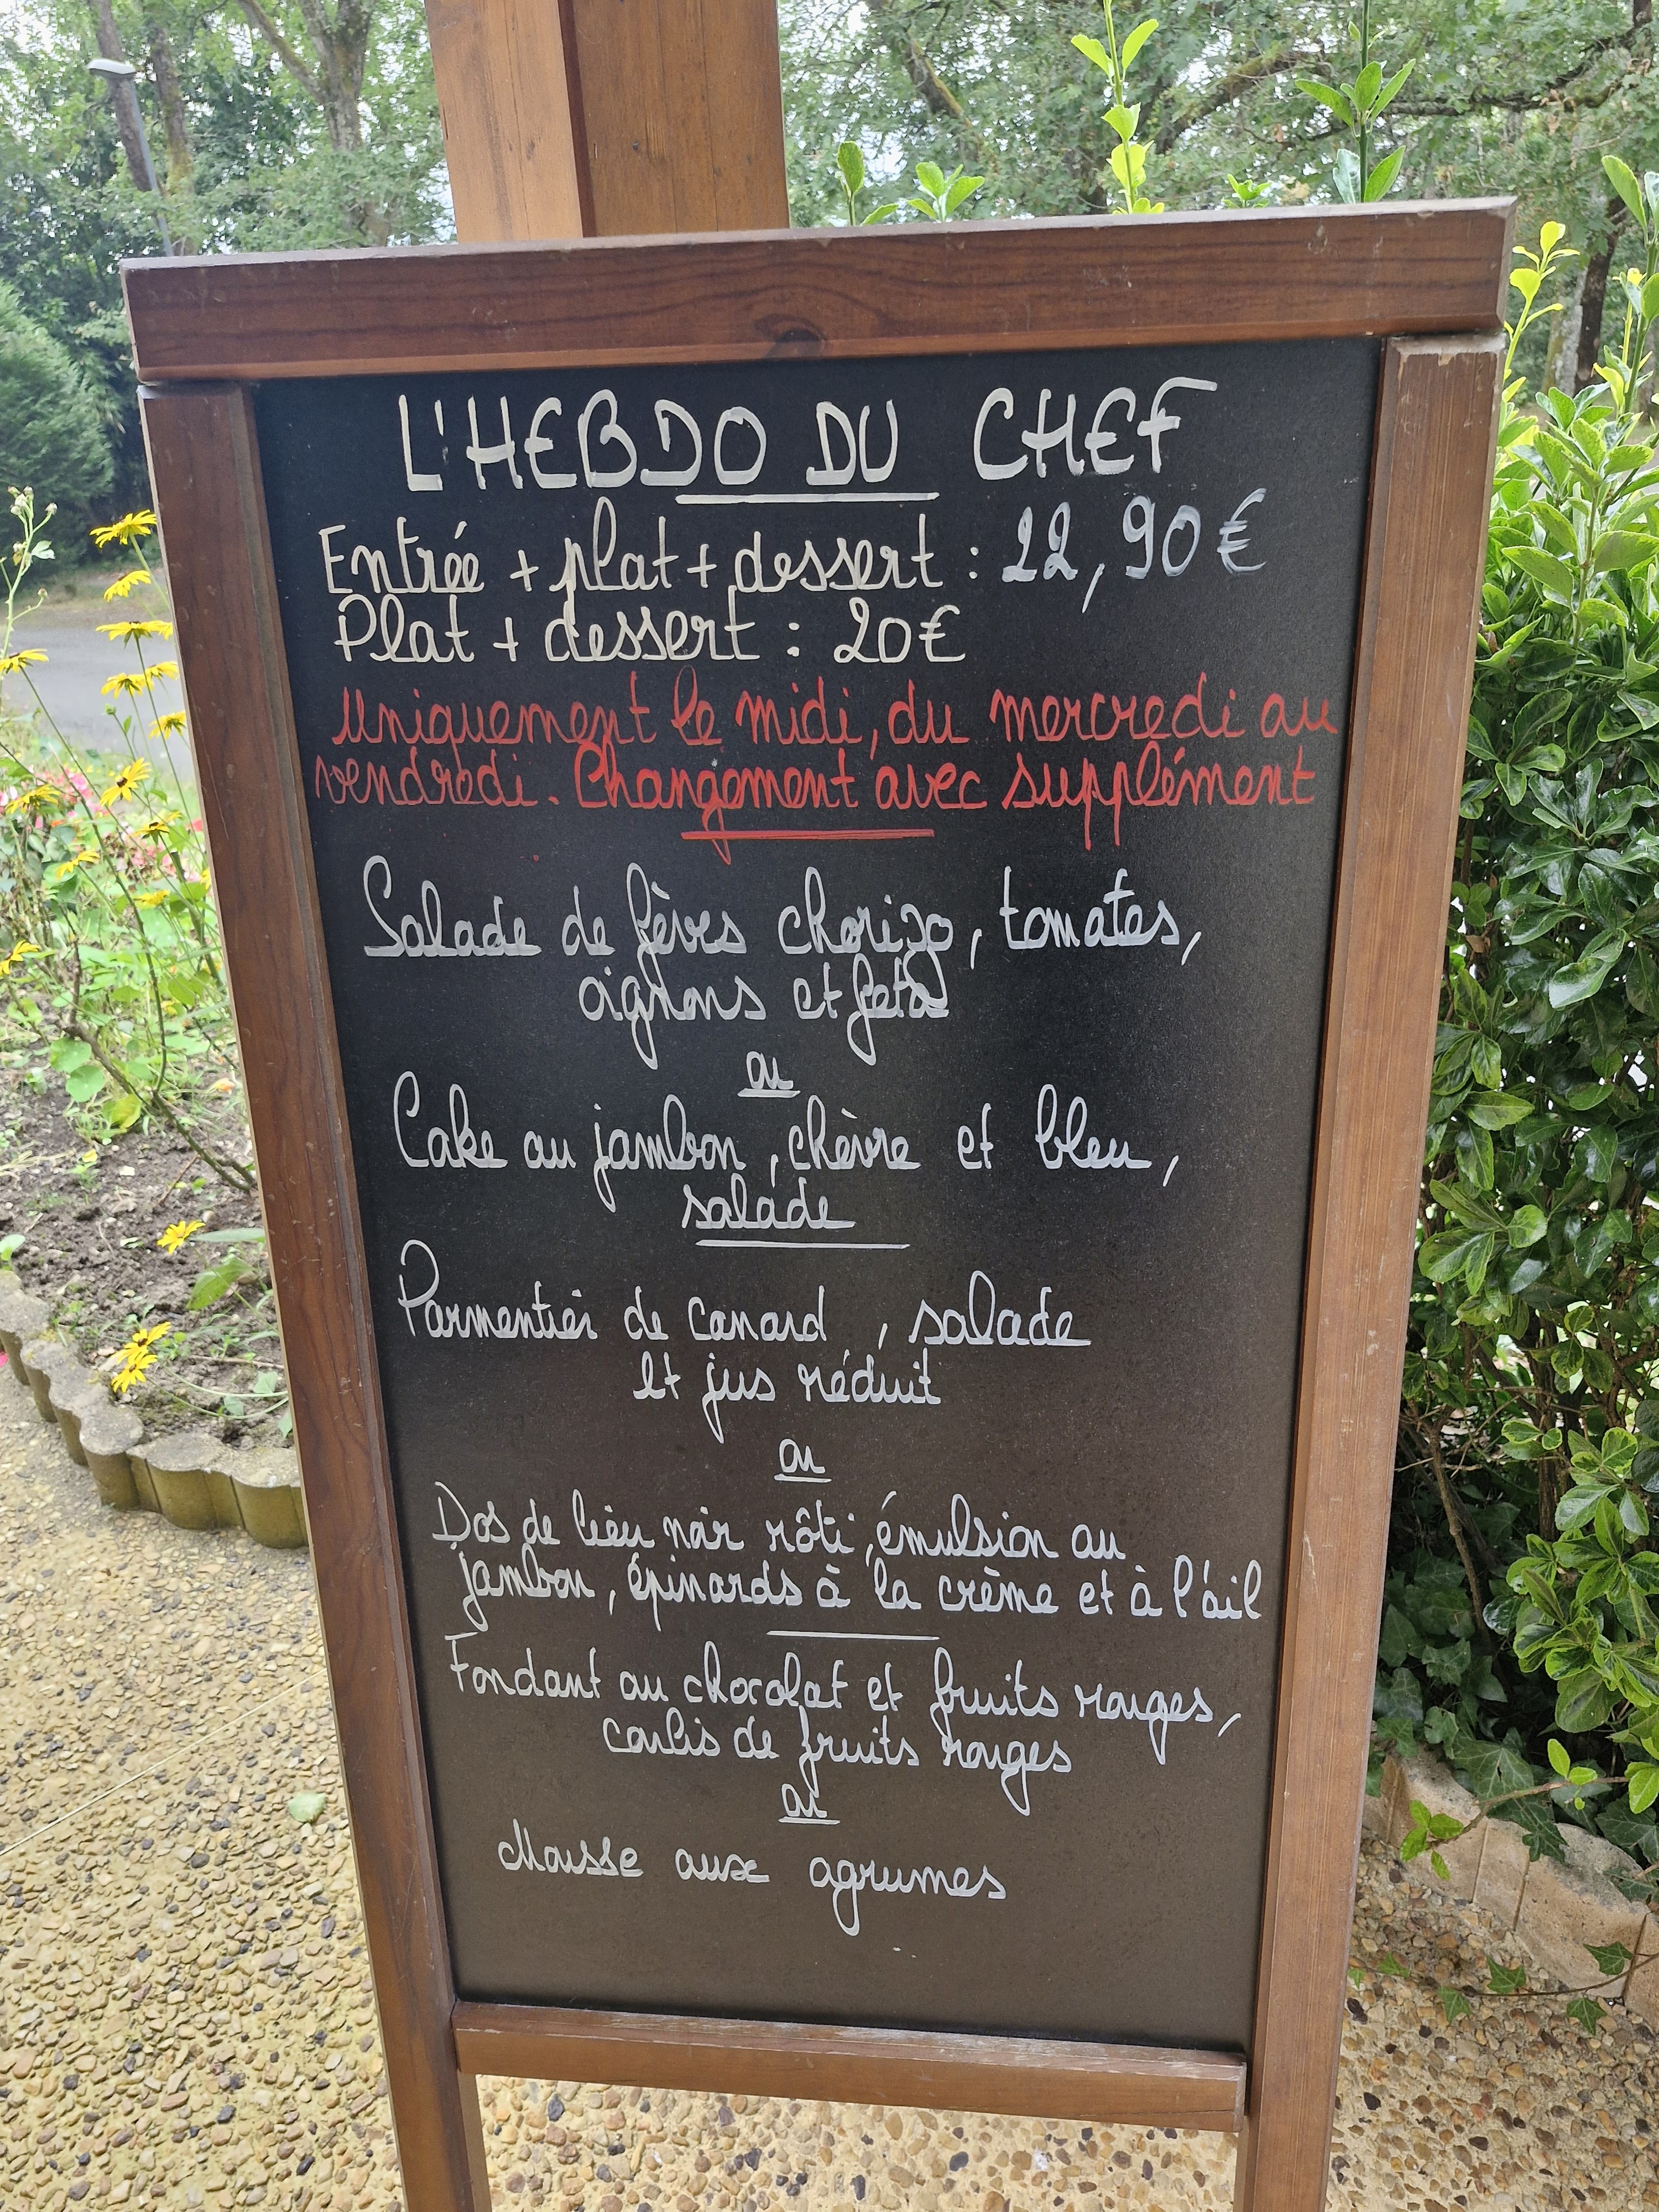 L'HEBDO DU CHEF
Entrée + plat + dessert : 22,90€
Plat + dessert : 20€
Uniquement le midi, du mercredi au
vendredi. Changement avec supplément
Salade de fèves chorizo, tomates,
oignons et feta
ou
Cake au jambon, chèvre et bleu,
salade
Parmentier de canard, salade
et jus réduit
ou
Dos de lieu noir rôti, émulsion au
jambon, épinards à la crème et à l'ail
Fondant au chocolat et fruits rouges,
coulis de fruits rouges
ou
Mousse aux agrumes